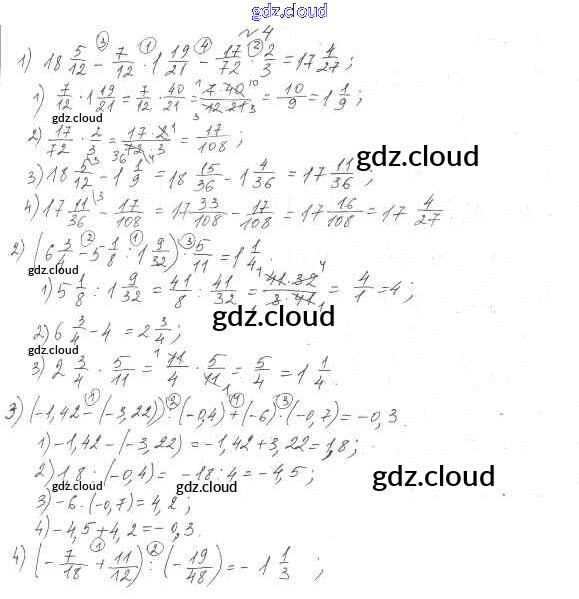 gdz.cloud
№4
1) 18 5/12 - 7/12 · 1 19/21 - 17/72 · 2/3 = 17 4/27;
1) 7/12 · 1 19/21 = 7/12 · 40/21 = 7·40/12·21 = 10/9 = 1 1/9;
2) 17/72 · 2/3 = 17·2/72·3 = 17/108;
gdz.cloud
3) 18 5/12 - 1 1/9 = 18 15/36 - 1 4/36 = 17 11/36;
gdz.cloud
4) 17 11/36 - 17/108 = 17 33/108 - 17/108 = 17 16/108 = 17 4/27.
2) (6 3/4 - 5 1/8 : 1 9/32) · 5/11 = 1 1/4.
gdz.cloud
1) 5 1/8 : 1 9/32 = 41/8 : 41/32 = 41·32/8·41 = 4/1 = 4;
gdz.cloud
2) 6 3/4 - 4 = 2 3/4;
gdz.cloud
3) 2 3/4 · 5/11 = 11/4 · 5/11 = 5/4 = 1 1/4.
3) (-1,42 - (-3,22)) : (-0,4) + (-6) · (-0,7) = -0,3.
1) -1,42 - (-3,22) = -1,42 + 3,22 = 1,8;
2) 1,8 : (-0,4) = -18 : 4 = -4,5;
gdz.cloud
gdz.cloud
3) -6 · (-0,7) = 4,2;
4) -4,5 + 4,2 = -0,3.
4) (-7/18 + 11/12) : (-19/48) = -1 1/3;